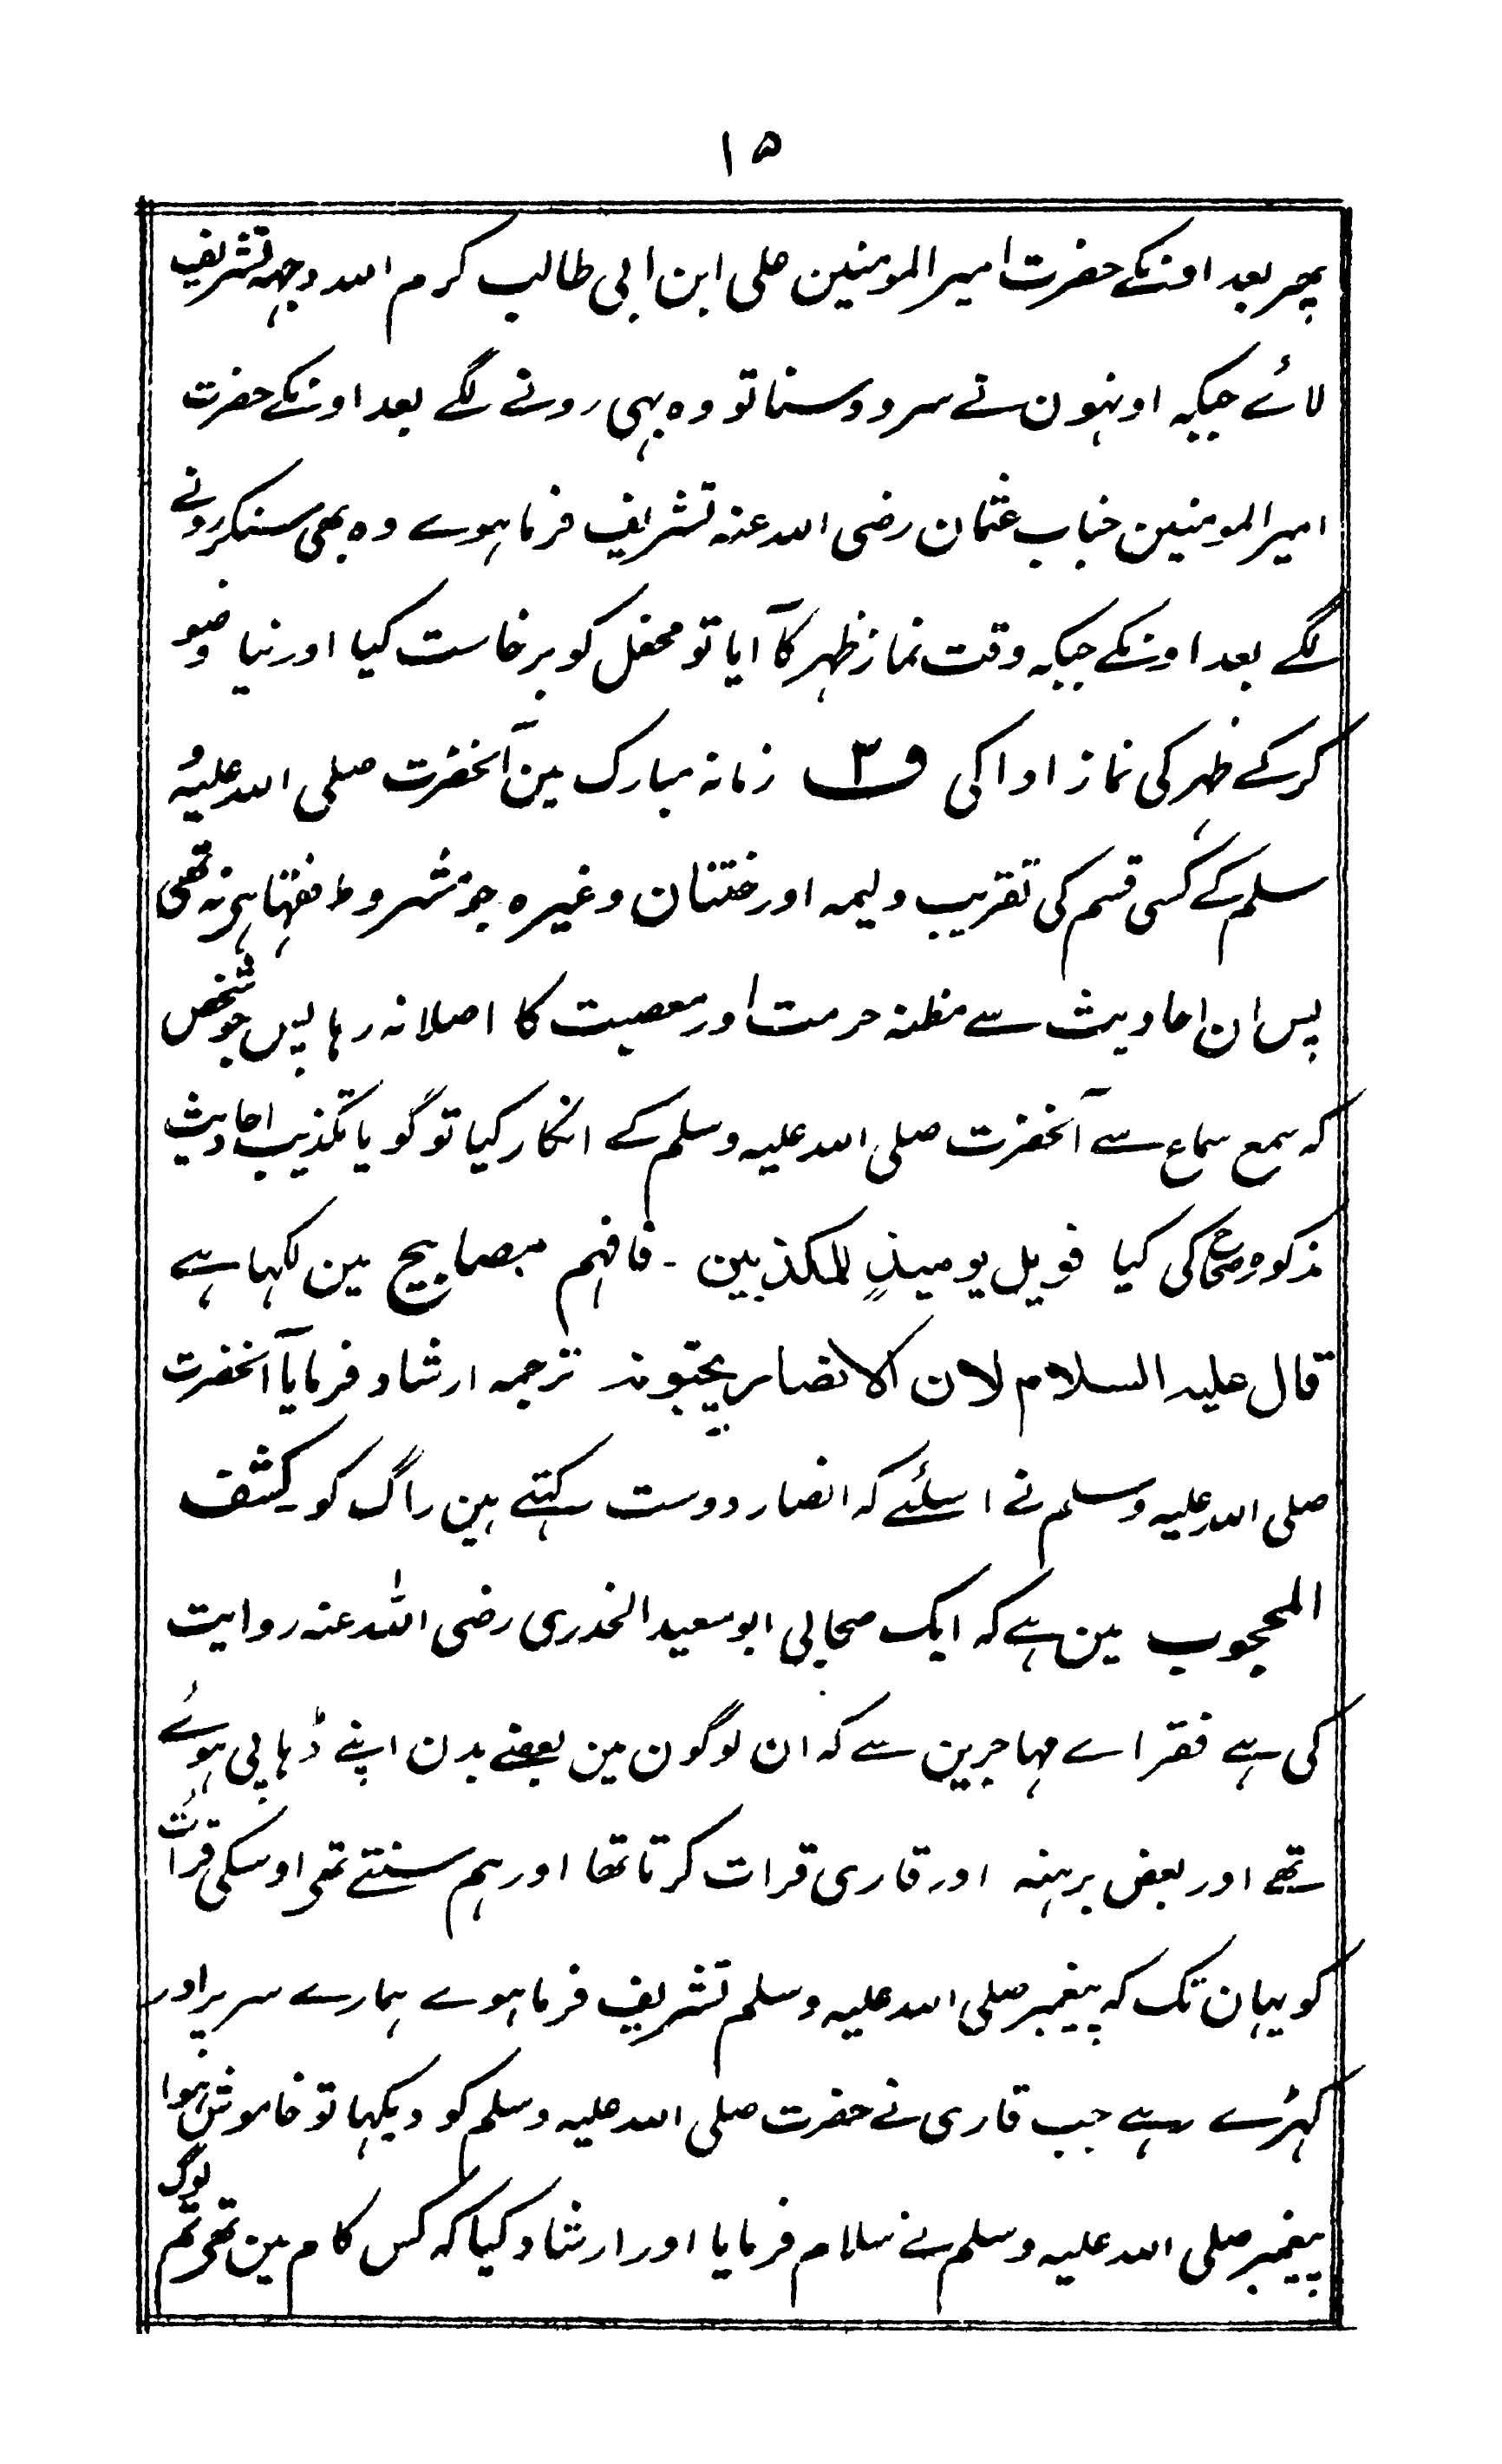 ۱۵
پھر بعد اونکے حضرت امیر المومنین علی ابن ابی طالب کرم اللہ وجہہ تشریف
لائے جبکہ اونہون نے سرود سنا تو وہ بہی رونے لگے بعد اونکے حضرت
امیر المومنین جناب عثمان رضی اللہ عنہ تشریف فرما ہوے وہ بھی سنکر رونے
لگے بعد اونکے جبکہ وقت نماز ظہر کا آیا تو محفل کو برخاست کیا اور نیا وضو
کرکے ظہر کی نماز ادا کی ف۳ زمانہ مبارک مین آنحضرت صلی اللہ علیہ و
سلم کے کسی قسم کی تقریب ولیمہ اور ختنان وغیرہ جو شروط فقہا ہی نہ تھی
پس ان احادیث سے مظنہ حرمت اور معصیت کا اصلا نہ رہا پس جو شخص
کہ سمع سماع سے آنحضرت صلی اللہ علیہ وسلم کے انکار کیا تو گویا تکذیب احادیث
مذکورہ صحاح کی کیا فویل یومیذٍ للمکذبین ۔ فافہم مصابیح مین لکہا ہے
قال علیہ السلام لان الانصار یحبونہ ترجمہ ارشاد فرمایا آنحضرت
صلی اللہ علیہ وسلم نے اسلئے کہ انصار دوست رکہتے ہین راگ کو۔ کشف
المحجوب مین ہے کہ ایک صحابی ابو سعید الخدری رضی اللہ عنہ روایت
کی ہے فقراے مہاجرین سے کہ ان لوگون مین بعضے بدن اپنے ڈہاپی ہوئے
تھے اور بعض برہنہ اور قاری قرات کرتا تھا اور ہم سنتے تھی اوسکی قرأت
کو یہان تک کہ پیغمبر صلی اللہ علیہ وسلم تشریف فرما ہوے ہمارے سر پر اور
کہڑے رہے جب قاری نے حضرت صلی اللہ علیہ وسلم کو دیکہا تو خاموش ہوا
پیغمبر صلی اللہ علیہ وسلم نے سلام فرمایا اور ارشاد کیا کہ کس کام مین تھی تم لوگ